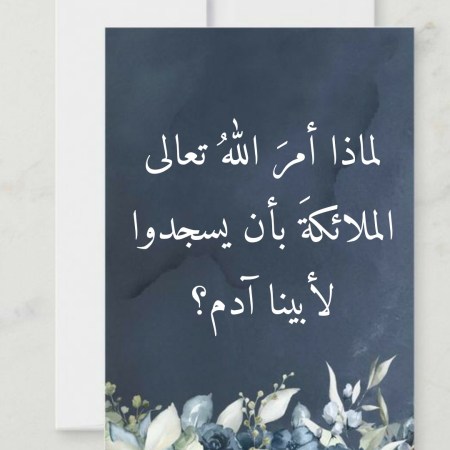 لماذا أمرَ اللهُ تعالى
الملائكةَ بأن يسجدوا
لأبينا آدم؟